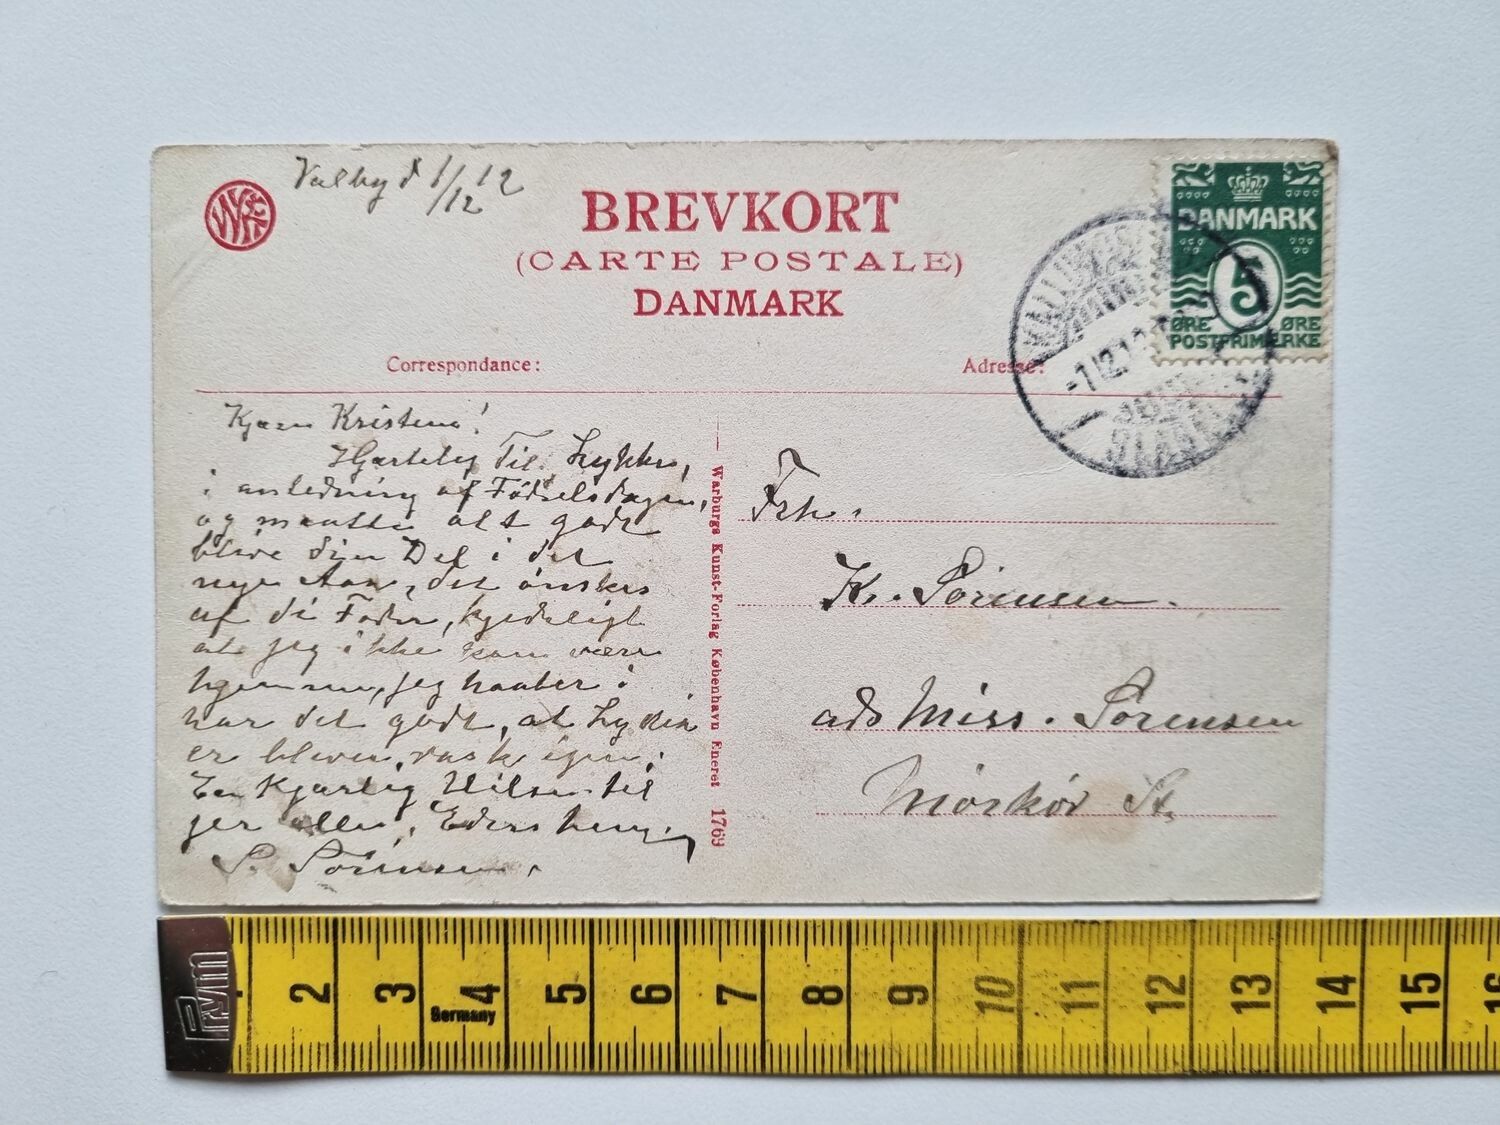 Valby d 1/12 12
BREVKORT
(CARTE POSTALE)
DANMARK
DANMARK
5
ØRE ØRE
POSTFRIMÆRKE
-1.12.12
Correspondance:
Adresse:
Kjære Kristena!
Hjertelig Til Lykke,
i anledning af Fødselsdagen,
og maatte alt godt
blive din Del i det
nye Aar, det ønskes
af di Fader, kjedeligt
at jeg ikke kan være
hjemme, jeg haaber i
har det godt, at Lydia
er bleven rask igen.
En Kjærlig Hilsen til
jer alle, Eders
S. Sørensen.
Warburgs Kunst-Forlag København Eneret 1769
Frk.
Kr. Sörensen.
ads Miss. Sörensen
Mörköv St.
Prym
2 3 4 5 6 7 8 9 10 11 12 13 14 15 16
Germany